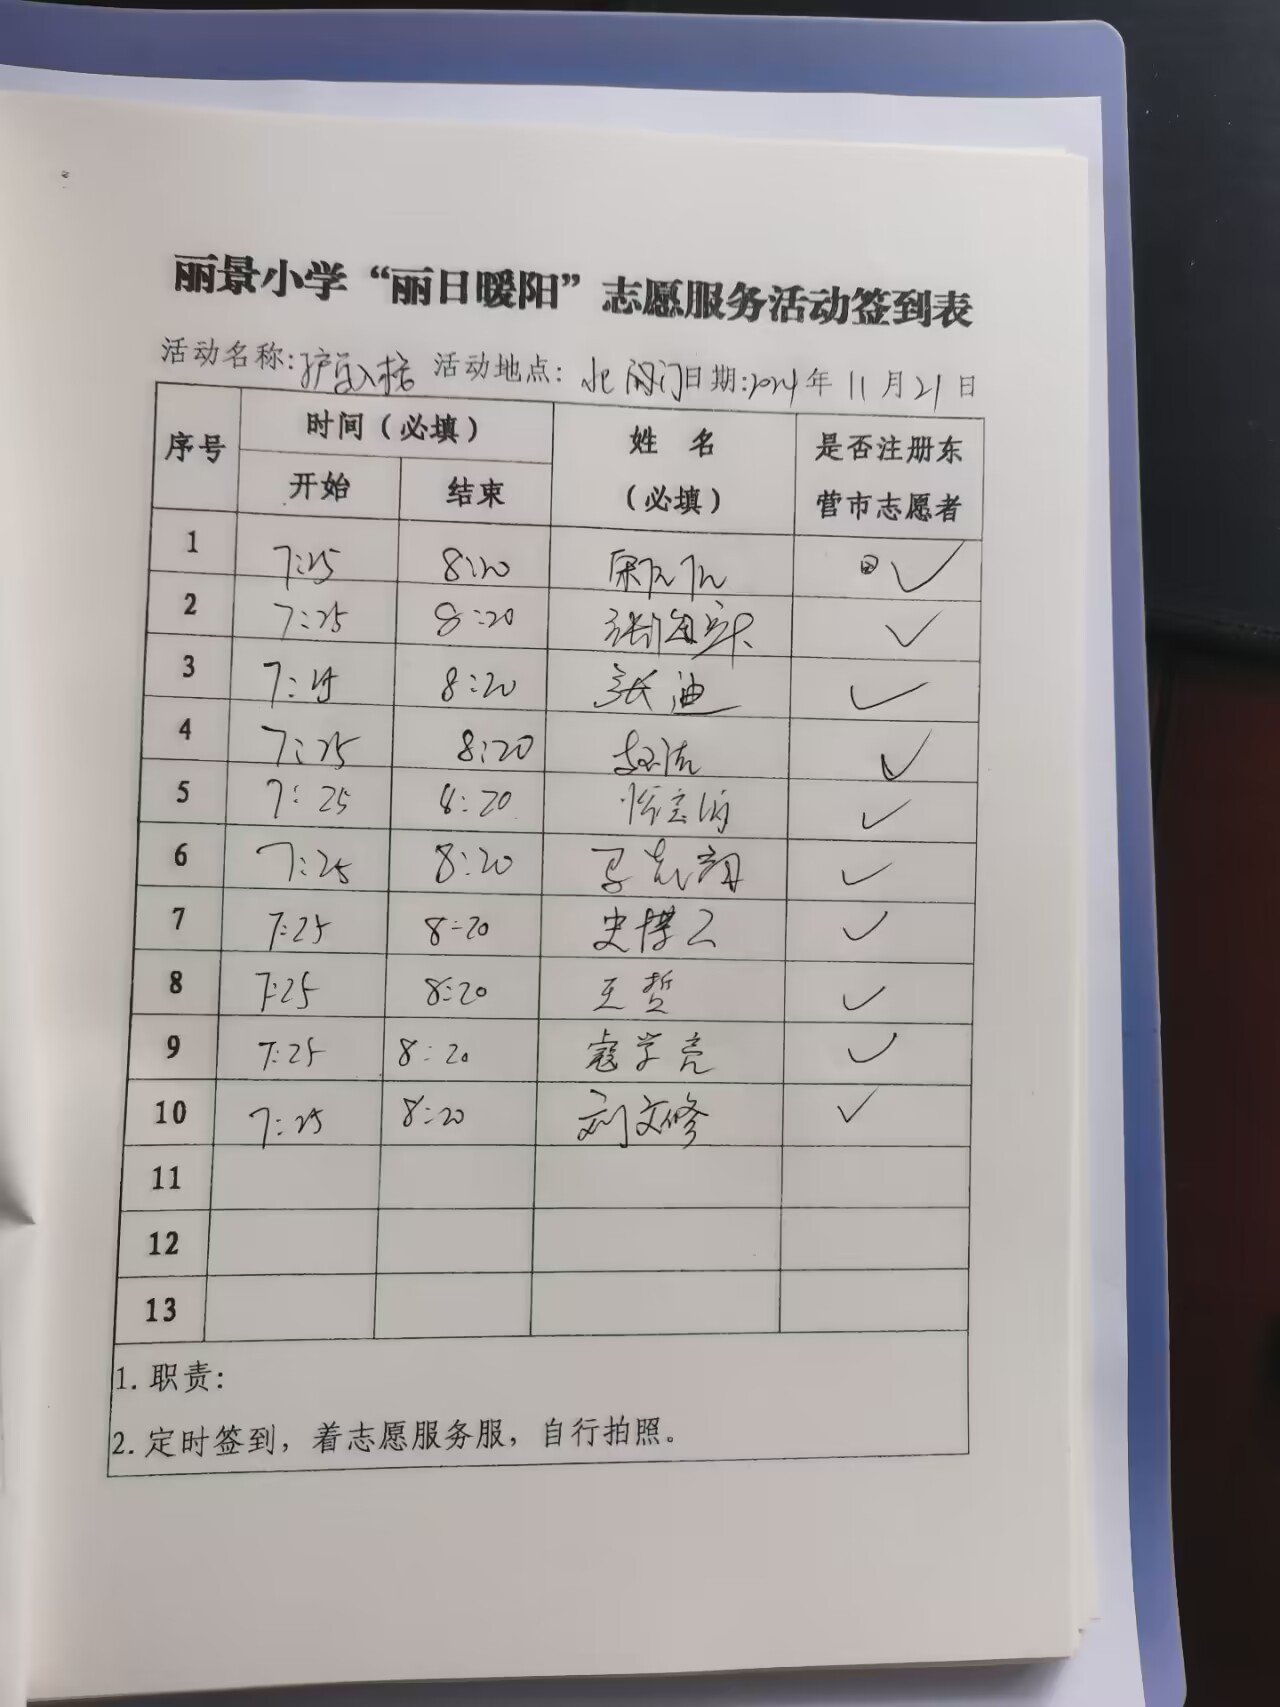 丽景小学“丽日暖阳”志愿服务活动签到表
活动名称:护学入校 活动地点: 北 门日期:2024年 11 月 21 日
序号 时间(必填) 姓 名 (必填) 是否注册东营市志愿者
开始 结束
1 7:25 8:20 ✓
2 7:25 8:20 张 ✓
3 7:25 8:20 张迪 ✓
4 7:25 8:20 ✓
5 7:25 8:20 ✓
6 7:25 8:20 ✓
7 7:25 8:20 史 ✓
8 7:25 8:20 王哲 ✓
9 7:25 8:20 寇学亮 ✓
10 7:25 8:20 刘文修 ✓
11
12
13
1. 职责:
2. 定时签到，着志愿服务服，自行拍照。